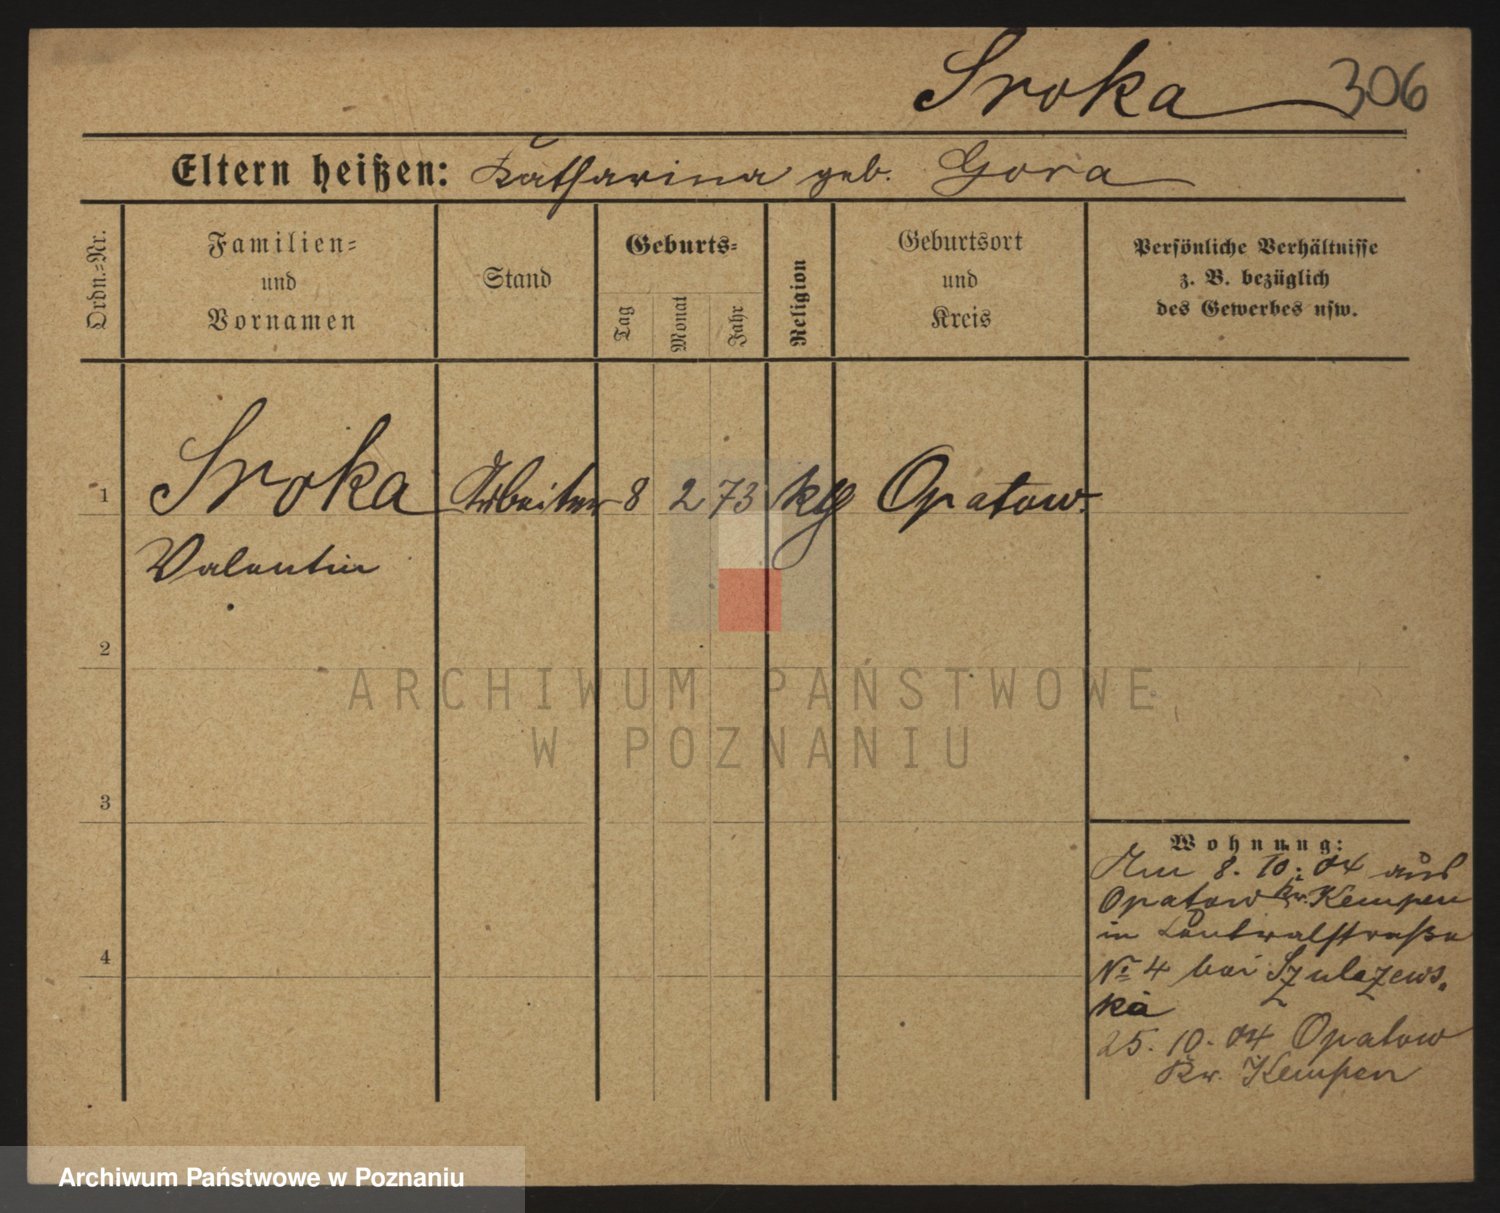 Sroka 306
Eltern heißen: Katharina geb. Gora
Ordn.=Nr.
Familien=
und
Vornamen
Stand
Geburts=
Tag
Monat
Jahr
Religion
Geburtsort
und
Kreis
Persönliche Verhältnisse
z. B. bezüglich
des Gewerbes usw.
1 Sroka Arbeiter 8 2 73 kth Opatow.
Valentin
2
3
4
Wohnung:
Am 8. 10. 04 aus
Opatow Kr. Kempen
in Centralstraße
No 4 bei Szulczews.
ka
25. 10. 04 Opatow
Kr. Kempen
ARCHIWUM PAŃSTWOWE
W POZNANIU
Archiwum Państwowe w Poznaniu